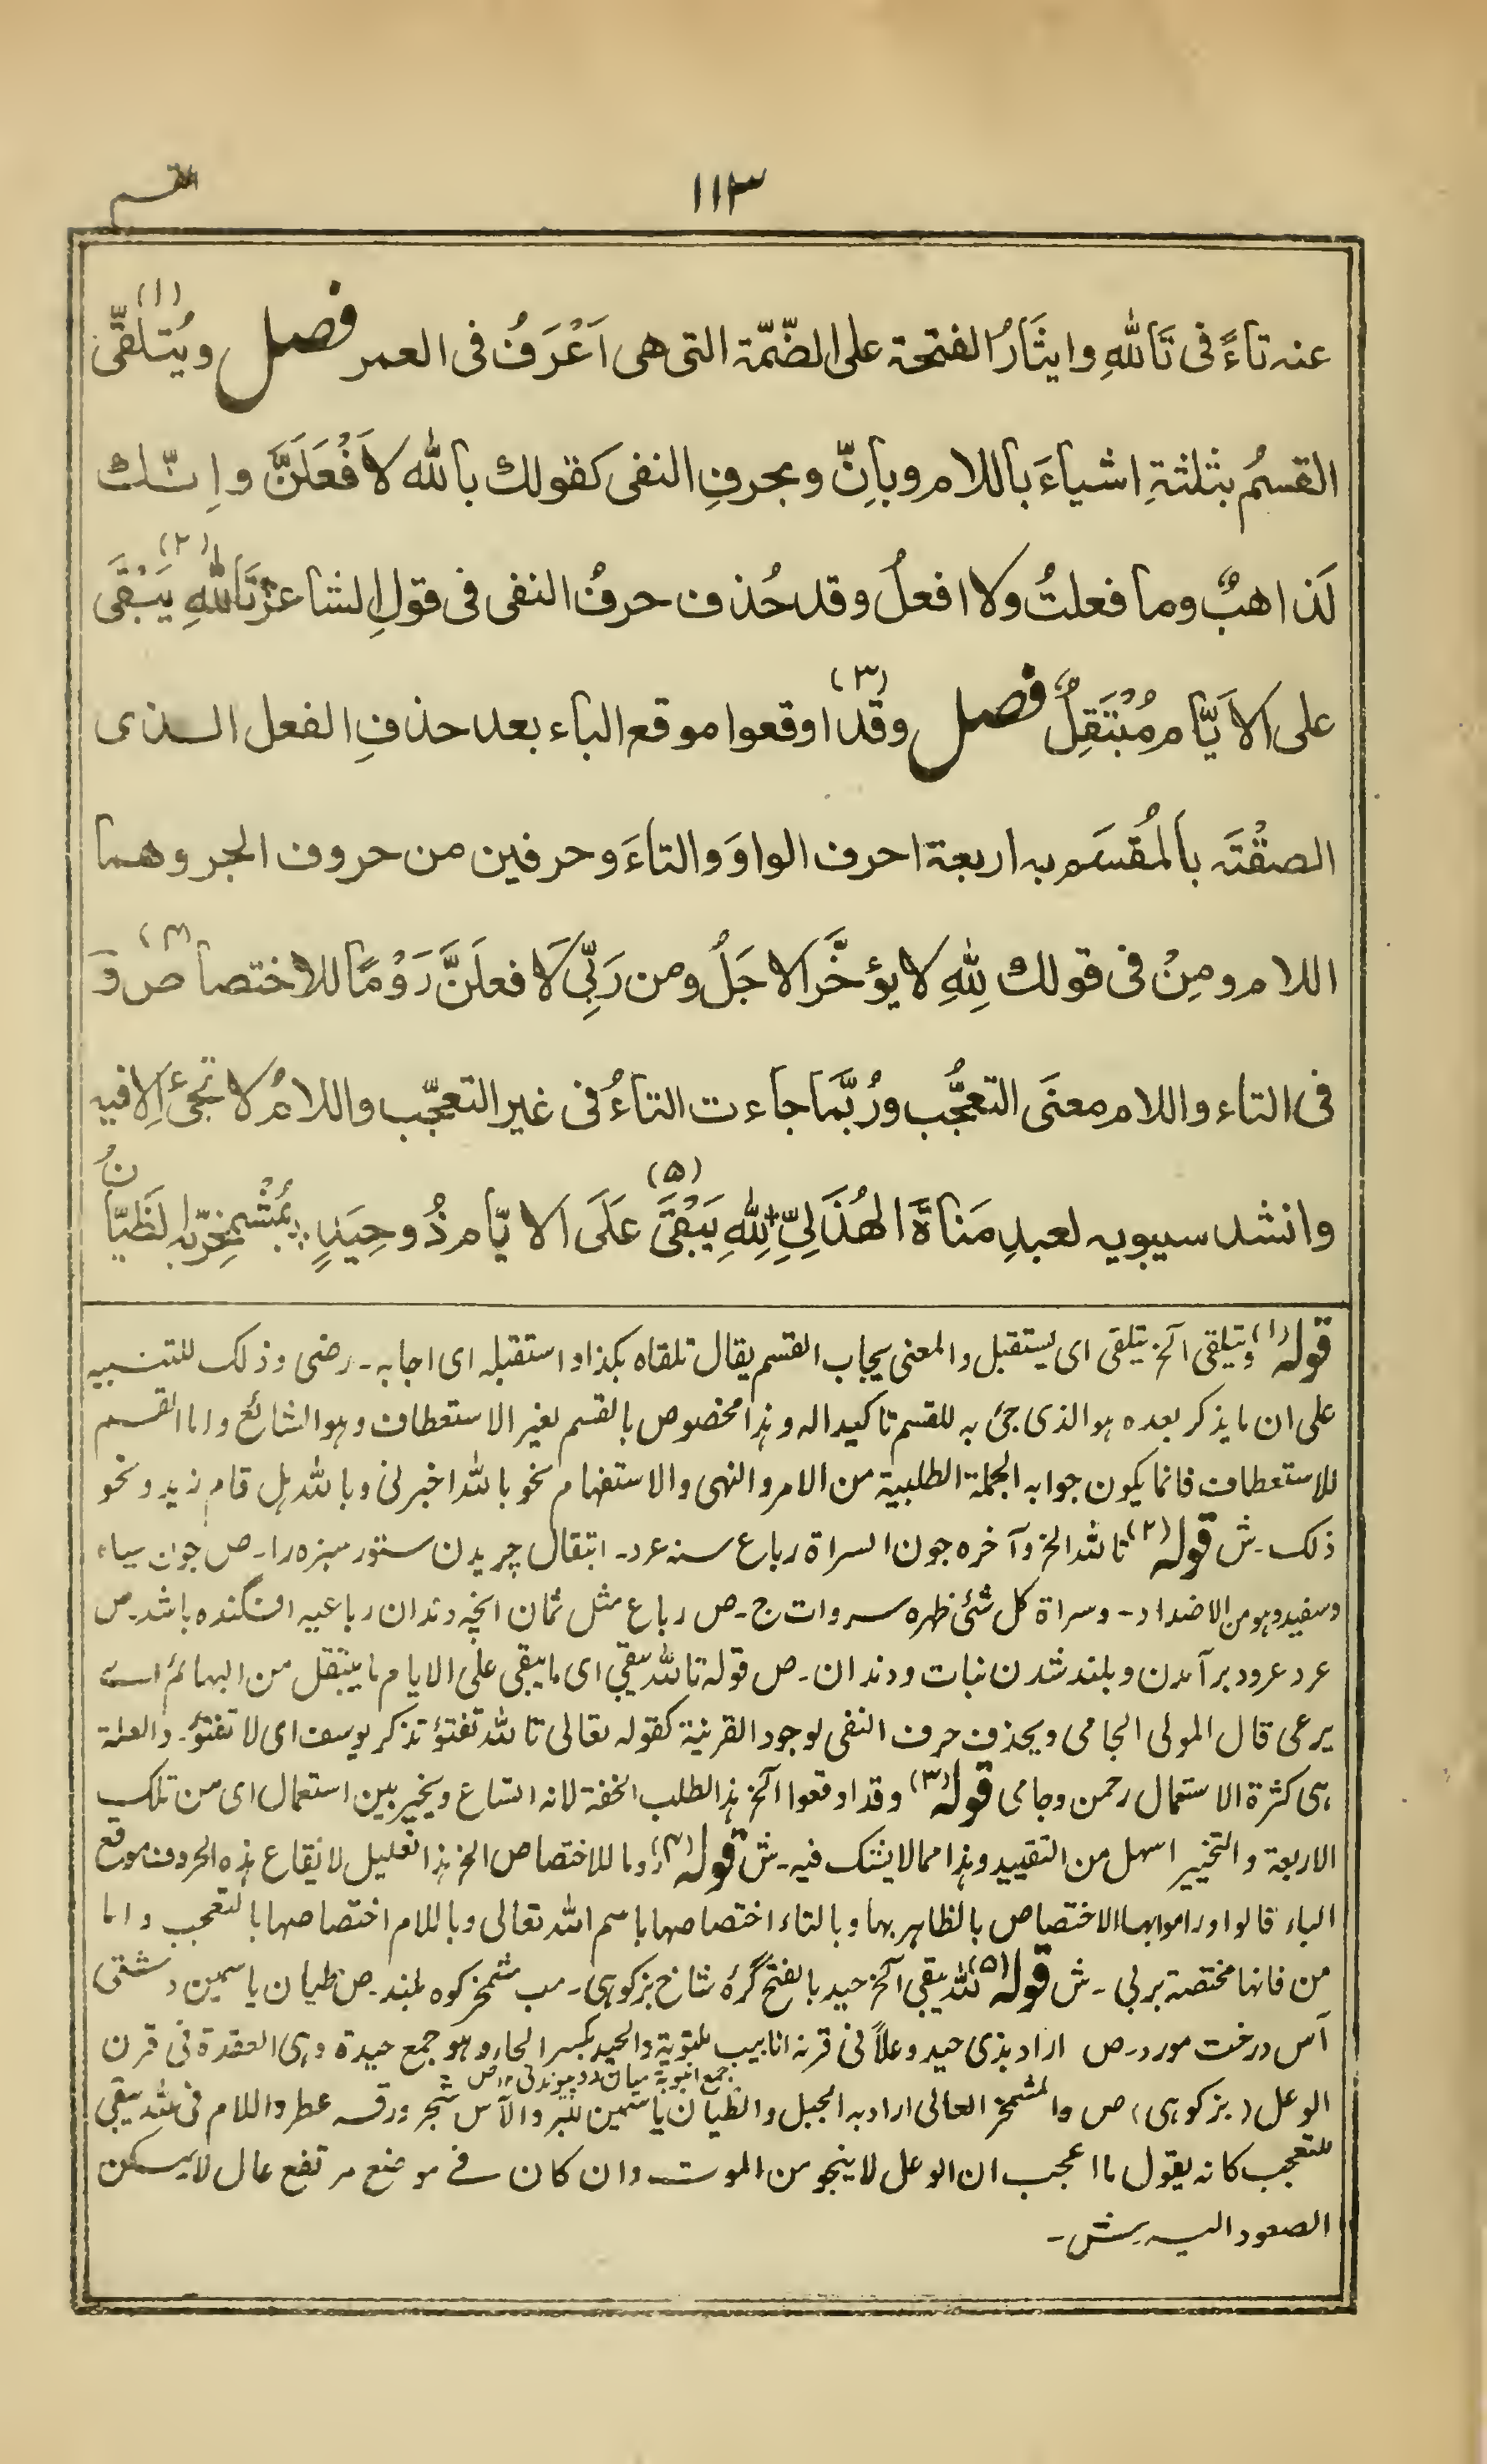 ١١٣
القسم
عنه تاءً فى تَاللهِ وايثَارُ الفتحة على الضّمّة التى هى اَعْرَفُ فى العمر فصل ويُتلقّى (١)
القسمُ بثلثةِ اشياءَ باللام وبانّ وبحرفِ النفى كقولك بالله لاَفْعَلَنَّ وانّك
لَذاهبٌ وما فعلتُ ولا افعلُ وقد حُذف حرفُ النفى فى قولِ الشاعر تَاللهِ يَبْقَى (٢)
على الايّام مُبْتَقِلٌ فصل وقد (٣) اوقعوا موقع الباء بعد حذفِ الفعل الذى
الصقْتَه بالمُقسَم به اربعة احرف الواوَ والتاءَ وحرفين من حروف الجر وهما
اللام ومِنْ فى قولك لِلّهِ لا يؤخَّر الاجَلُ ومن رَبِّى لَافعلَنَّ رَوْمًا (٤) للاختصاص وَ
فى التاء واللام معنَى التعجُّب ورُبَّما جاءت التاءُ فى غير التعجّب واللامُ لا تجئ اِلا فيه
وانشد سيبويه لعبدِ مَناةَ الهُذَلِىِّ لِلّهِ يَبْقَى (٥) عَلَى الايّام ذُو حِيَدٍ ؞ بمُشْمَخِرّ به الظَيّانُ
قوله (١) ويتلقى آلخ يتلقى اى يستقبل والمعنى يجاب القسم يقال تلقاه بكذا واستقبله اى اجابه ـ رضى وذلك للتنبيه
على ان ما يذكر بعده هو الذى جئ به للقسم تاكيدا له وهذا مخصوص بالقسم لغير الاستعطاف وهو الشائع واما القسم
للاستعطاف فانما يكون جوابه الجملة الطلبية من الامر والنهى والاستفهام نحو بالله اخبرنى وبالله هل قام زيد ونحو
ذلك ـ ش قوله (٢) تالله الخ وآخره جون السراة رباع سنه غرد ـ ابتقال چریدن ستور سبزه را ـ ص جون سیاه
وسفيد وهو من الاضداد ـ وسراة كل شئ ظهره سروات ج ـ ص رباع مثل ثمان انچه دندان رباعیه افگنده باشد ـ ص
عرد عرود برآمدن وبلند شدن نبات ودندان ـ ص قوله تالله يبقى اى ما يبقى على الايام ما يبتقل من البهائم اے
يرعى قال المولى الجامى ويحذف حرف النفى لوجود القرينة كقوله تعالى تالله تفتؤ تذكر يوسف اى لا تفتؤ ـ والعلة
هى كثرة الاستعمال رحمن وجامى قوله (٣) وقد اوقعوا آلخ هذا لطلب الخفة لانه اتساع ويخير بين استعمال اى من تلك
الاربعة والتخيير اسهل من التقييد وهذا مما لا يشك فيه ـ ش قوله (٤) روما للاختصاص الخ هذا تعليل لايقاع هذه الحروف موقع
الباء قالوا وراموا بها الاختصاص بالظاهر بها وبالتاء اختصاصها باسم الله تعالى وباللام اختصاصها بالتعجب واما
من فانها مختصة بربى ـ ش قوله (٥) لله يبقى آلخ حيد بالفتح گرۂ شاخ بزکوہی ـ مب مشمخر کوه بلند ـ ص ظيان ياسمين دشتى
آس درخت مورد ـ ص اراد بذى حيد وعلاً فى قرنه انابيب ملتوية والحيد بكسر الحاء وهو جمع حيدة وهى العقدة فى قرن
جمع انبوبة میان دو پیوند نی ١٢ ص
الوعل (بزکوہی) ص والمشمخر العالى اراد به الجبل والظيان ياسمين للبر والآس شجر ورقه عطر واللام فى لله يبقى
للتعجب كانه يقول ما اعجب ان الوعل لا ينجو من الموت وان كان فے موضع مرتفع عال لا يمكن
الصعود اليه ـ ش ـ